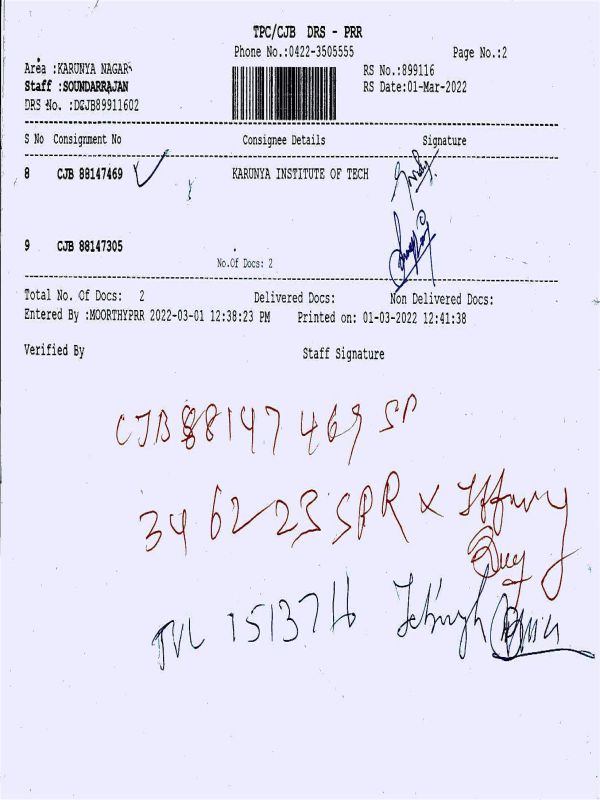 TPC/CJB DRS - PRR
Phone No.:0422-3505555 Page No.:2
Area :KARUNYA NAGAR RS No.:899116
Staff :SOUNDARRAJAN RS Date:01-Mar-2022
DRS No. :DCJB89911602
S No Consignment No Consignee Details Signature
8 CJB 88147469 KARUNYA INSTITUTE OF TECH
9 CJB 88147305
No.Of Docs: 2
Total No. Of Docs: 2 Delivered Docs: Non Delivered Docs:
Entered By :MOORTHYPRR 2022-03-01 12:38:23 PM Printed on: 01-03-2022 12:41:38
Verified By Staff Signature
CJB88147469 SP
346223 SPR
TVL